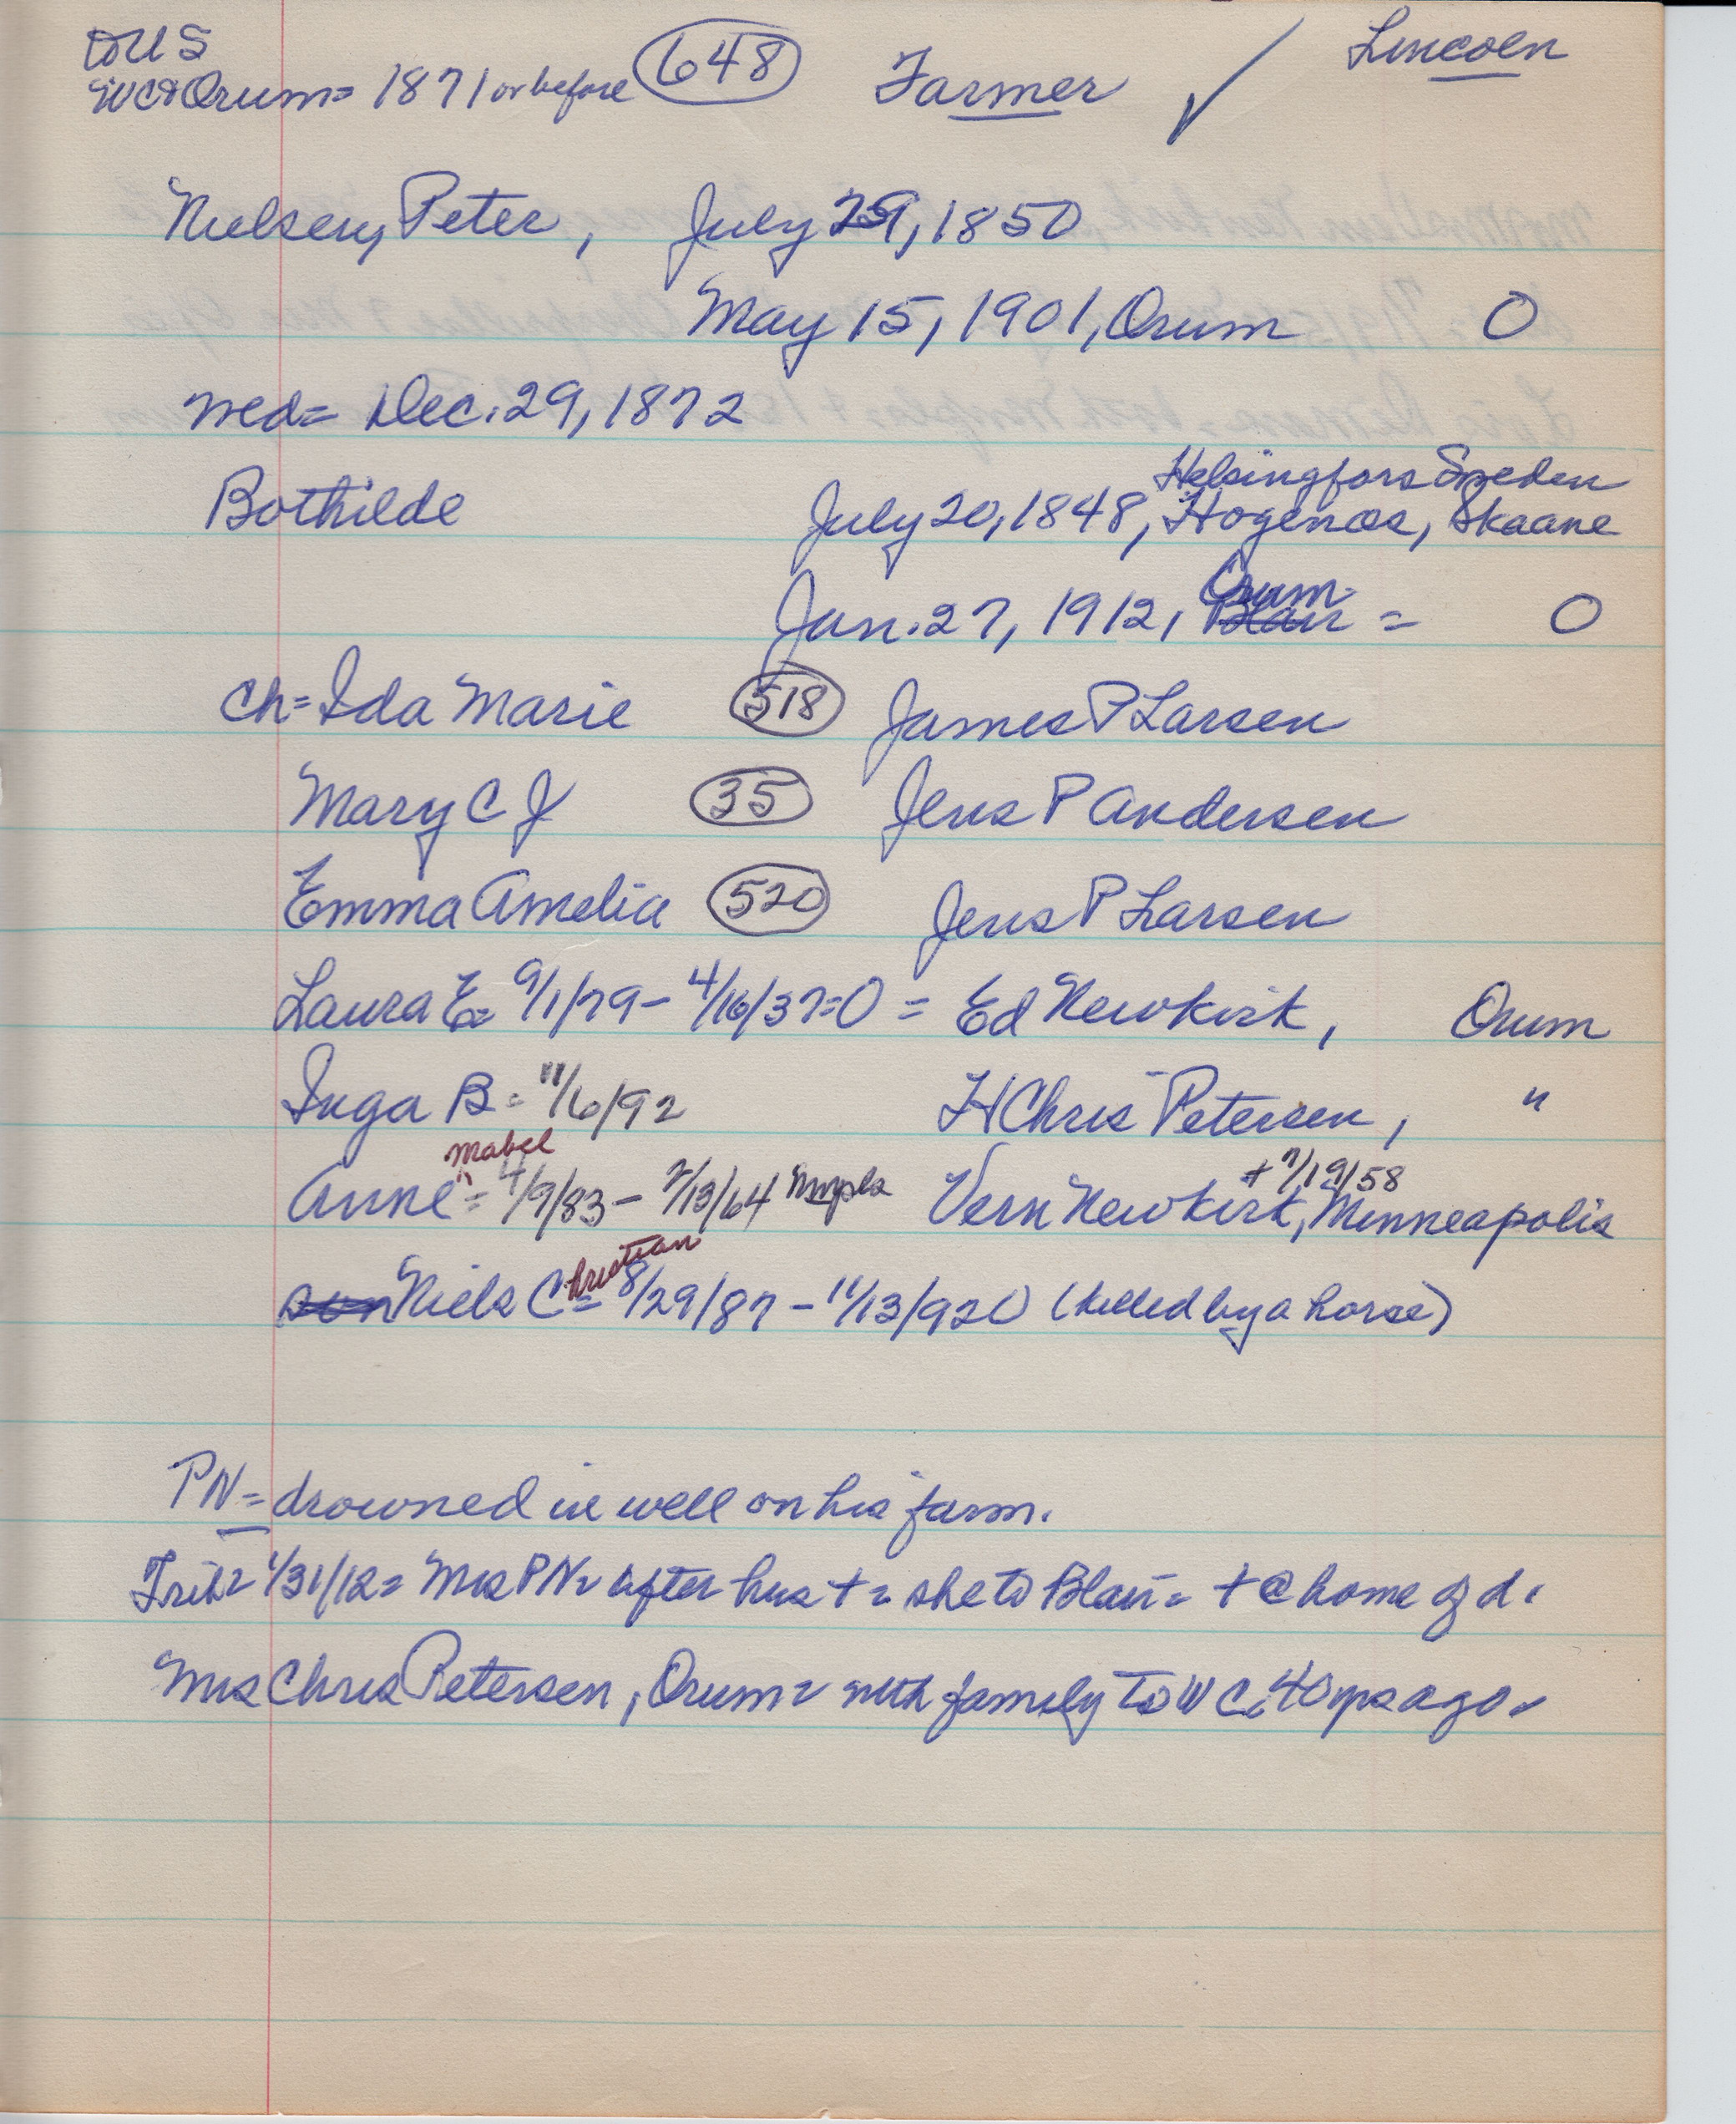 to U S
WC & Orum = 1871 or before 648 Farmer ✓ Lincoln
Nielsen, Peter, July 29, 1850
May 15, 1901, Orum O
med = Dec. 29, 1872
Helsingfors Sweden
Bothilde July 20, 1848, Hogenas, Skaane
Orum
Jan. 27, 1912, Blair = O
ch = Ida Marie 518 James P Larsen
Mary C J 35 Jens P Andersen
Emma Amelia 520 Jens P Larsen
Laura E = 9/1/79 - 4/16/37 = O = Ed Newkirk, Orum
Inga B = 11/6/92 H Chris Petersen, "
Mabel
+ 7/19/58
Anne " = 4/9/83 - 7/13/64 Mnpls Vern Newkirk, Minneapolis
hristian
son Niels C = 8/29/87 - 11/13/92 O (killed by a horse)
PN = drowned in well on his farm.
Trib = 1/31/12 = Mrs PN = after hus + = she to Blair = + @ home of d.
Mrs Chris Petersen, Orum = with family to W C. 40 yrs ago.